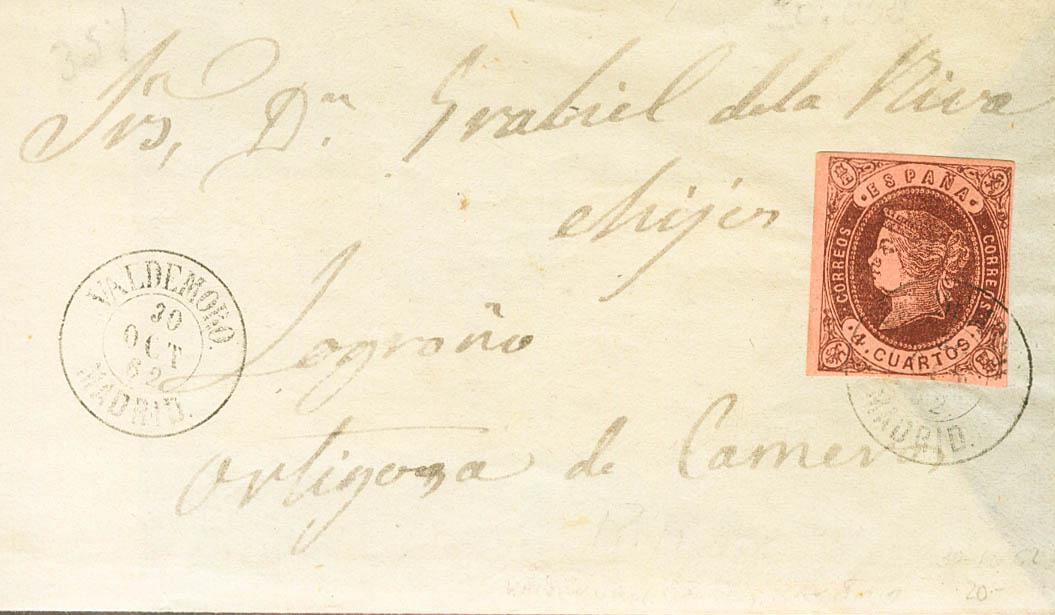 35)
Srs, Dn. Grabiel dela Riva
ehijos
Logroño
Ortigosa de Cameros
VALDEMORO.
30
OCT
62
MADRID.
ESPAÑA
CORREOS
CORREOS
4. CUARTOS
2
MADRID.
20-